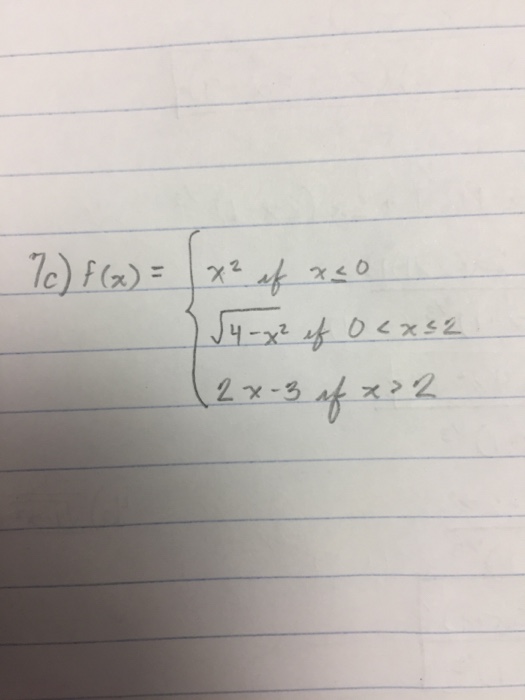 7c) f(x) = { x² if x ≤ 0
√(4-x²) if 0 < x ≤ 2
2x-3 if x > 2